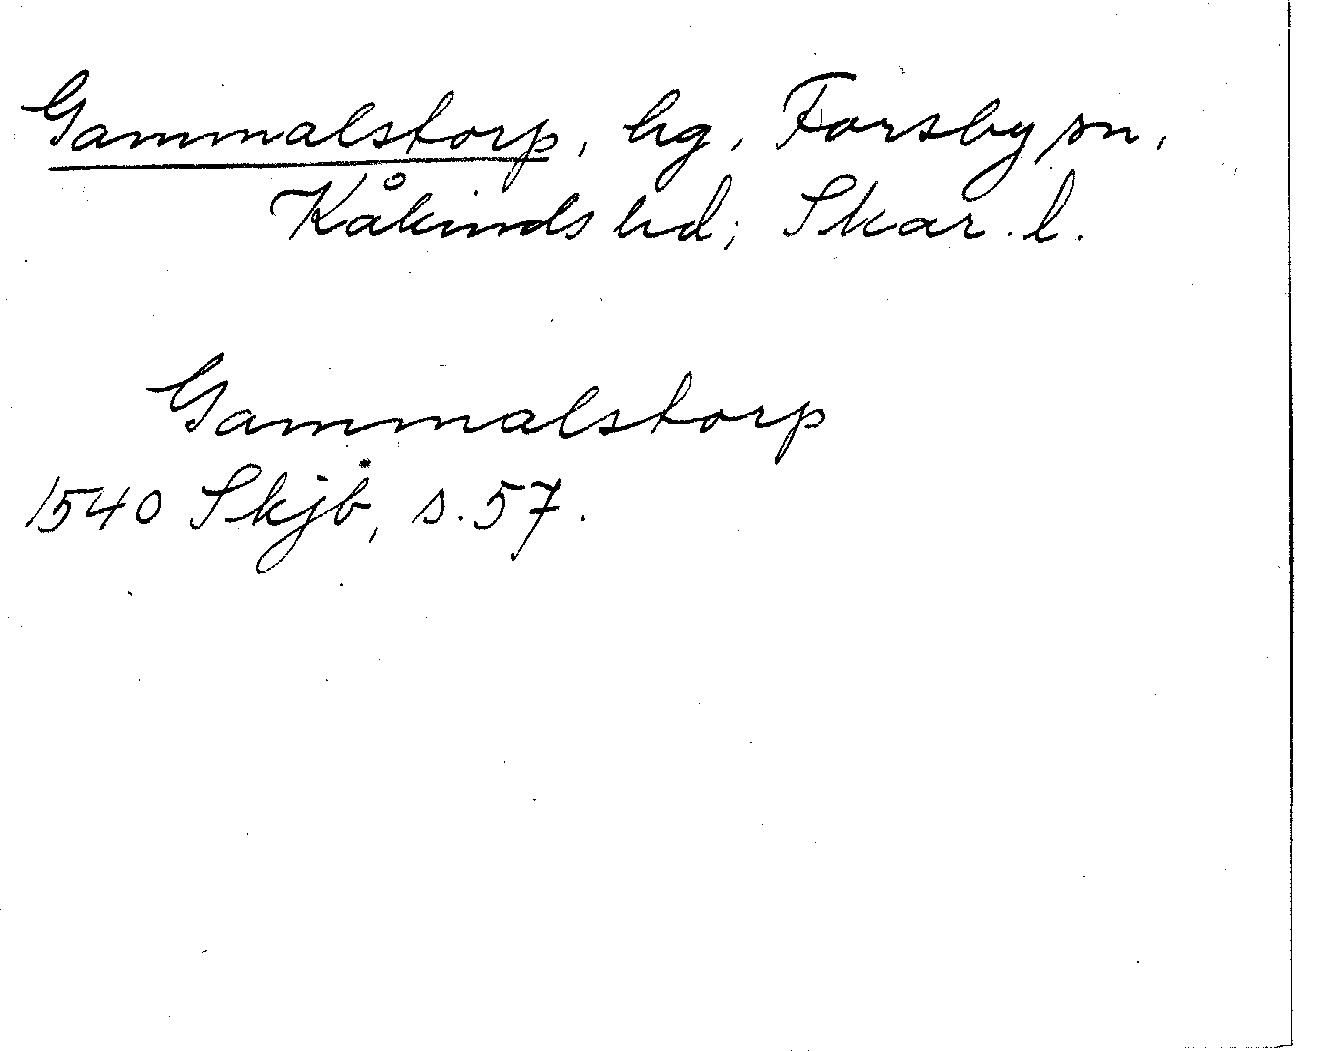 Gammalstorp, hg, Forsby sn,
Kåkinds hd; Skar. l.
Gammalstorp
1540 Skjb, s. 57.